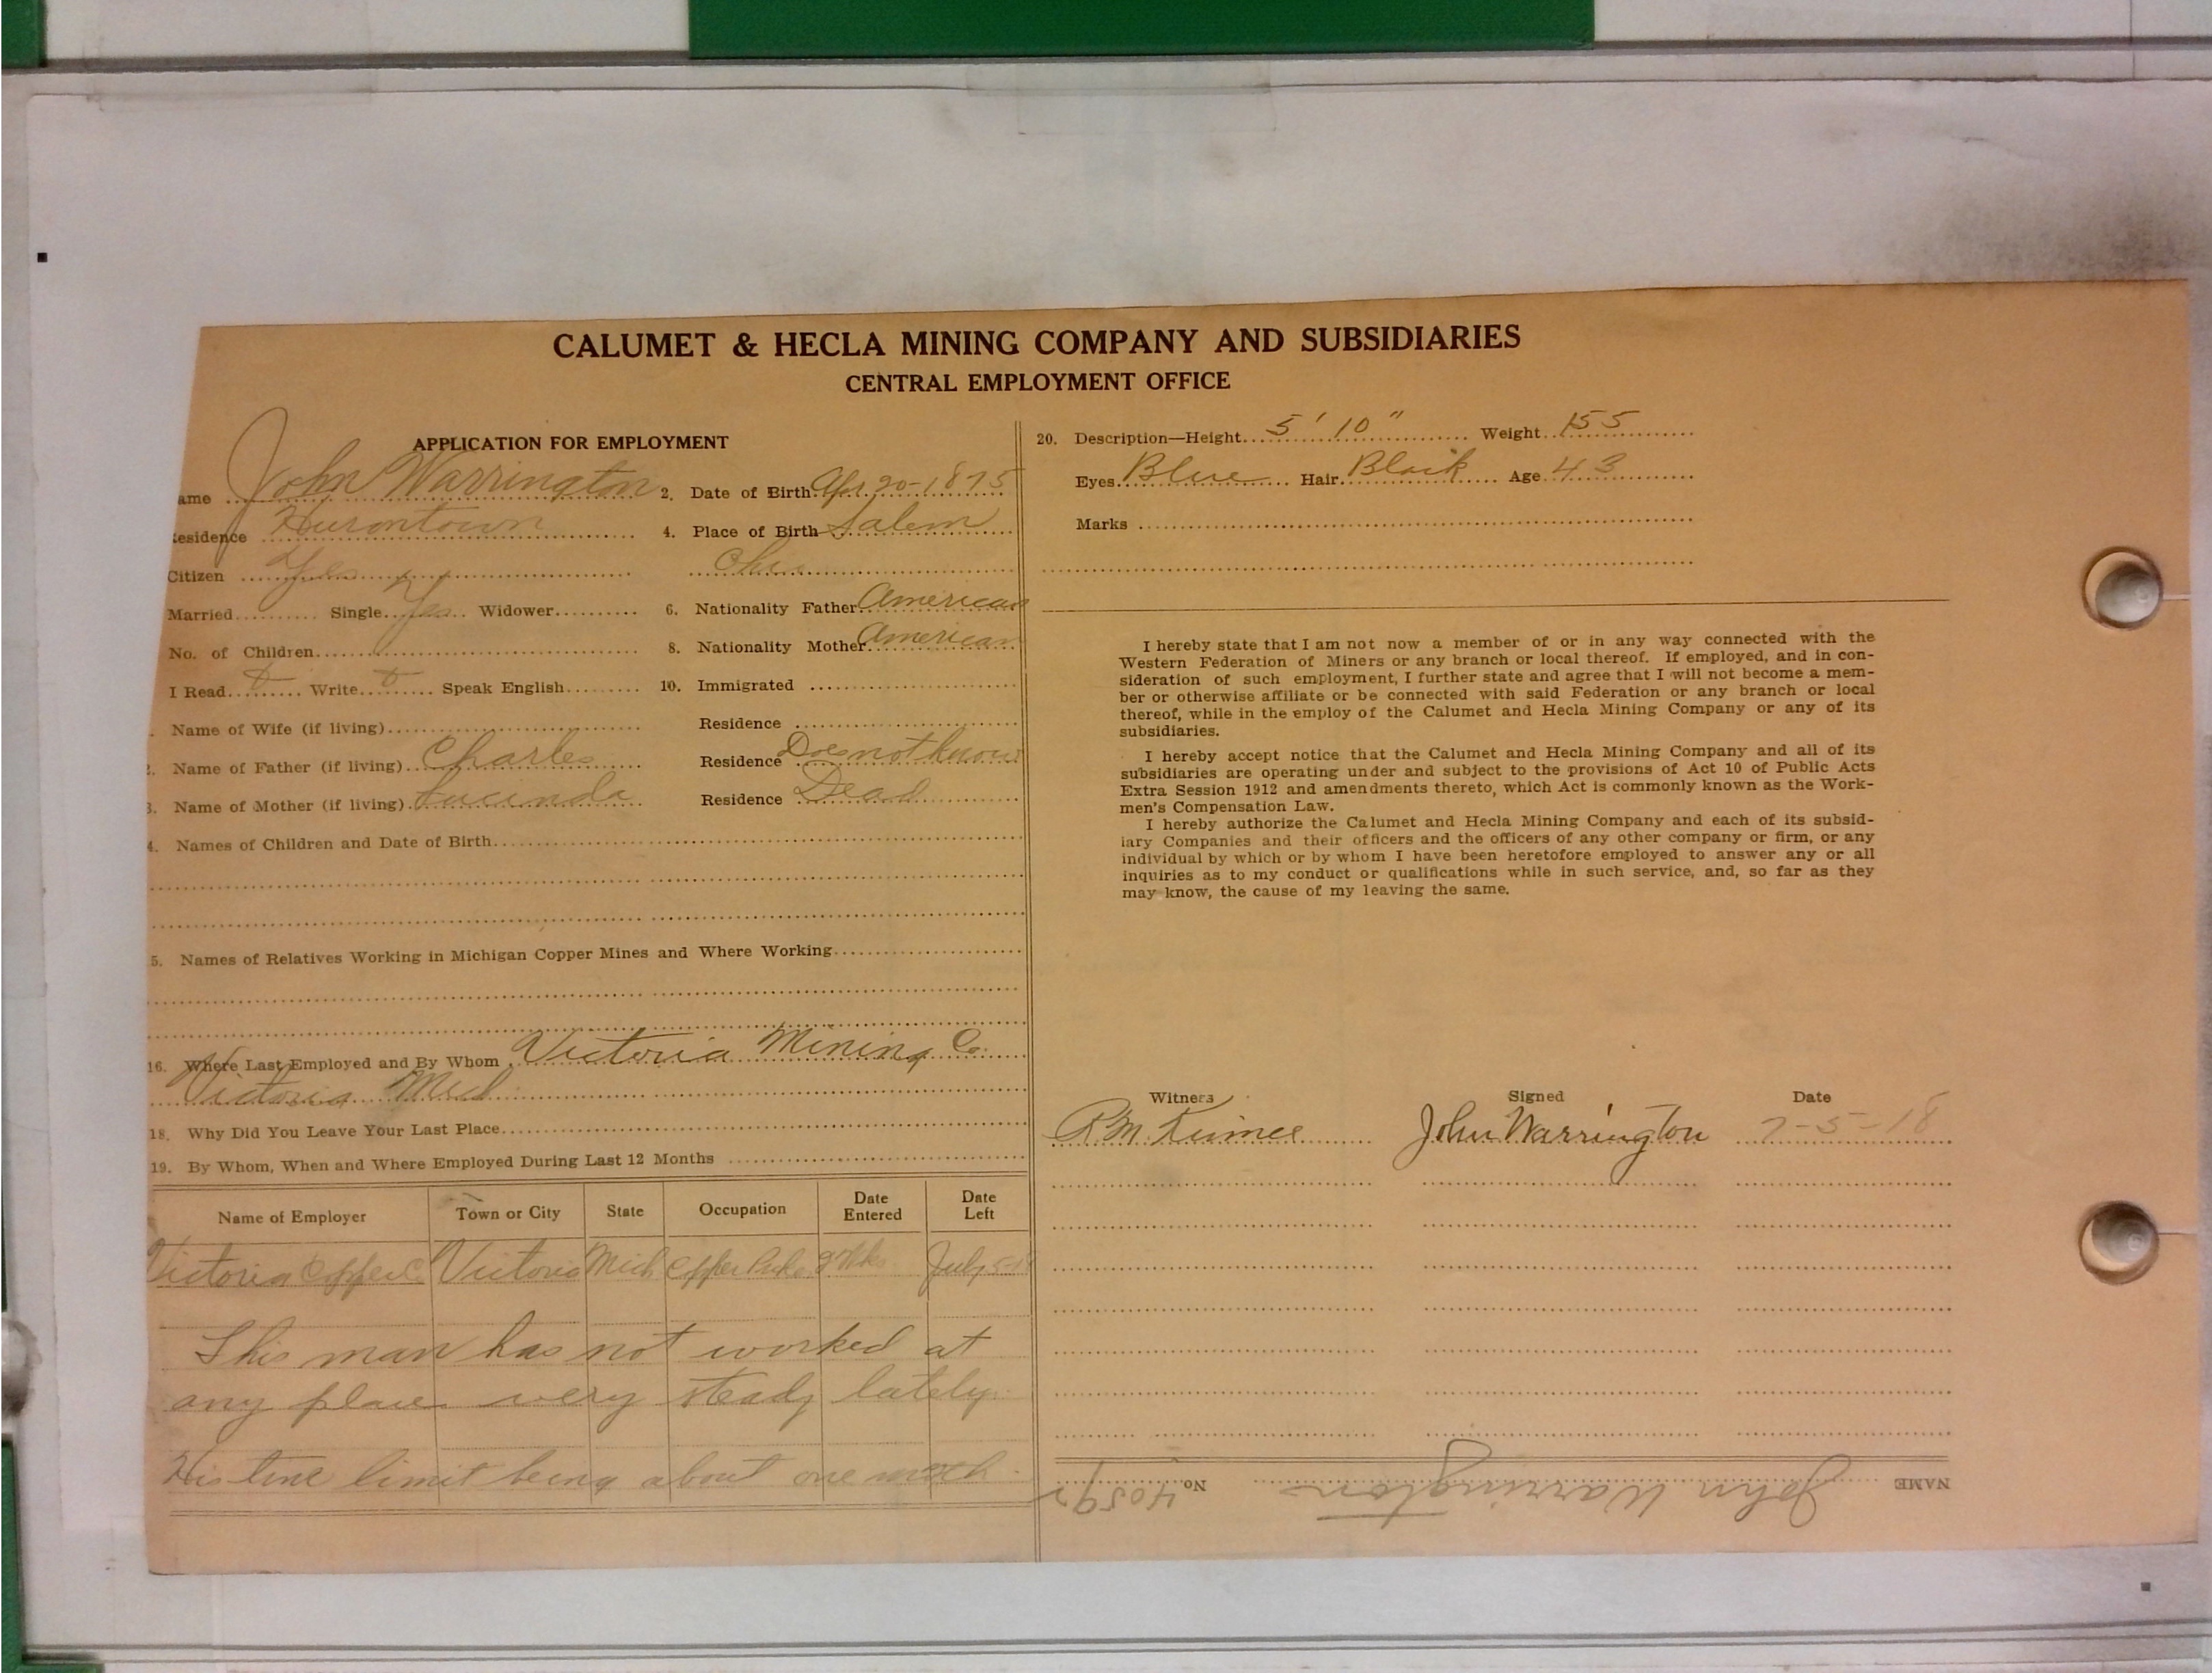 CALUMET & HECLA MINING COMPANY AND SUBSIDIARIES
CENTRAL EMPLOYMENT OFFICE
APPLICATION FOR EMPLOYMENT
ame John Warrington 2. Date of Birth Apr 20-1875
esidence Hurontown 4. Place of Birth Salem
Citizen Yes Ohio
Married Single Yes Widower 6. Nationality Father American
No. of Children 8. Nationality Mother American
I Read Write Speak English 10. Immigrated
Name of Wife (if living) Residence
Name of Father (if living) Charles Residence Does not know
3. Name of Mother (if living) Lucinda Residence Dead
4. Names of Children and Date of Birth
5. Names of Relatives Working in Michigan Copper Mines and Where Working
16. Where Last Employed and By Whom Victoria Mining Co.
Victoria Mich
18. Why Did You Leave Your Last Place
19. By Whom, When and Where Employed During Last 12 Months
Name of Employer Town or City State Occupation Date Entered Date Left
Victoria Copper C Victoria Mich July 5-18
This man has not worked at
any place very steady lately.
His time limit being about one
20. Description—Height 5' 10" Weight 155
Eyes Blue Hair Black Age 43
Marks
I hereby state that I am not now a member of or in any way connected with the
Western Federation of Miners or any branch or local thereof. If employed, and in con-
sideration of such employment, I further state and agree that I will not become a mem-
ber or otherwise affiliate or be connected with said Federation or any branch or local
thereof, while in the employ of the Calumet and Hecla Mining Company or any of its
subsidiaries.
I hereby accept notice that the Calumet and Hecla Mining Company and all of its
subsidiaries are operating under and subject to the provisions of Act 10 of Public Acts
Extra Session 1912 and amendments thereto, which Act is commonly known as the Work-
men's Compensation Law.
I hereby authorize the Calumet and Hecla Mining Company and each of its subsid-
iary Companies and their officers and the officers of any other company or firm, or any
individual by which or by whom I have been heretofore employed to answer any or all
inquiries as to my conduct or qualifications while in such service, and, so far as they
may know, the cause of my leaving the same.
Witness Signed Date
John Warrington 7-5-18
NAME John Warrington No.